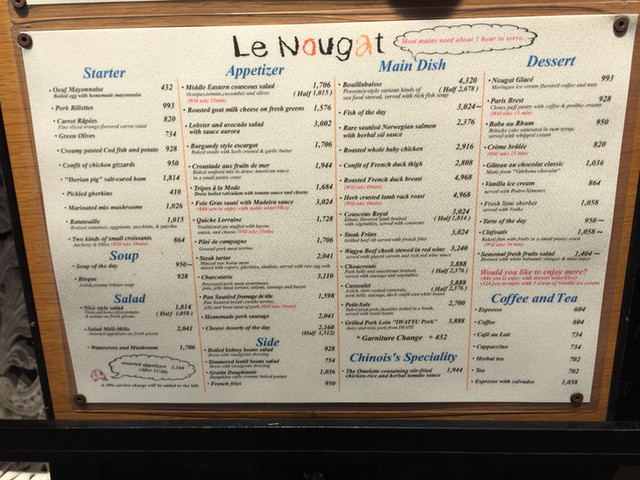 Le Nougat
Most mains need about 1 hour to serve.
Starter
Oeuf Mayonnaise 432
Boiled egg with homemade mayonnaise
Pork Rillettes 993
Carrot Râpées 820
Fine sliced orange-flavored carrot salad
Green Olives 734
Creamy pasted Cod fish and potato 928
Confit of chicken gizzards 950
"Iberian pig" salt-cured ham 1,814
Pickled gherkins 410
Marinated mix mushrooms 1,026
Ratatouille 1,015
Braised tomatoes, eggplants, zucchinis, & paprika
Two kinds of small croissants 864
Anchovy & Olive (Will take 20min)
Soup
Soup of the day 950~
Bisque 928
A rich, creamy lobster soup
Salad
Nice style salad 1,814
(Half 1,058)
Salad Méli-Mélo 2,041
Assorted appetizers on fresh greens
Watercress and Mushroom 1,706
assorted appetizers 2,160
(After 15:00)
A 10% service charge will be added to the bill.
Appetizer
Middle Eastern couscous salad 1,706
Octopus, tomato, cucumber and olives (Half 1,015)
Roasted goat milk cheese on fresh greens 1,576
Lobster and avocado salad 3,002
with sauce aurora
Burgundy style escargot 1,706
Baked snails with herb crusted & garlic butter
Croustade aux fruits de mer 1,944
Baked seafood mix in dense American sauce
in a small pastry crust
Tripes à la Mode 1,684
Dress boiled reticulum with tomato sauce and cheese
Foie Gras sauté with Madeira sauce 3,024
Quiche Lorraine 1,728
Traditional pie stuffed with bacon,
onion, and cheese
Pâté de campagne 1,706
Ground pork meat terrine
Steak tartar 2,041
Minced raw horse meat
mixed with capers, gherkins, shallots, served with raw egg yolk
Charcuterie 3,310
Processed pork meat assortment,
Pan Sautéed fromage de tête 1,598
Homemade pork sausage 2,041
Cheese Assorts of the day 2,160
(Half 1,512)
Side
Boiled kidney beans salad 928
Dress with vinaigrette dressing
Simmered lentil beans salad 734
Dress with vinaigrette dressing
Gratin Dauphinois 1,036
Dauphinois style creamy baked potato
French fries 950
Main Dish
Bouillabaisse 4,320
Provence-style various kinds of (Half 2,678)
sea food stewed, served with rich fish soup
Fish of the day 3,024~
Rare sautéed Norwegian salmon 2,376
with herbal tomato sauce
Roasted whole baby chicken 2,916
Confit of French duck thigh 2,808
Roasted French duck breast 4,968
Herb crusted lamb rack roast 4,968
Couscous Royal 3,024
(Half 1,814)
vegetables, served with couscous
Steak Frites 3,024
Grilled beef rib served with french fries
Wagyu Beef cheek stewed in red wine 3,240
served with glazed carrots and rich red wine sauce
Choucroute 3,888
Pork belly and sauerkraut braised, (Half 2,376)
served with sausage and vegetables
Cassoulet 3,888
A rich, slow-cooked casserole, (Half 2,376)
pork belly, sausage, duck confit and white beans
Petit-Sale 2,700
Salt-Cured pork shoulder boiled in a broth,
served with lentil beans
Grilled Pork Loin "IWATYU Pork" 3,888
Juicy and tasty pork from IWATE
* Garniture Change + 432
Chinois's Speciality
The Omelette containing stir-fried 1,944
chicken-rice and herbal tomato sauce
Dessert
Nougat Glacé 993
Meringue ice cream flavored coffee and nuts
Paris Brest 928
Choux puff pastry with coffee & praline creams
(Will take 15 min)
Baba au Rhum 950
Brioche cake saturated in rum syrup,
served with whipped cream
Crème brûlée 820
(Will take 15 min)
Gâteau au chocolat classic 1,036
Made from "Valrhona chocolat"
Vanilla ice cream 864
served with Pedro-Ximenez
Fresh lime sherbet 1,058
served with Vodka
Tarte of the day 950~
Clafoutis 1,058~
Baked flan with fruits in a small pastry crust
Seasonal fresh fruits salad 1,404~
Would you like to enjoy more?
Coffee and Tea
Espresso 604
Coffee 604
Café au Lait 734
Cappuccino 734
Herbal tea 702
Tea 702
Espresso with calvados 1,058